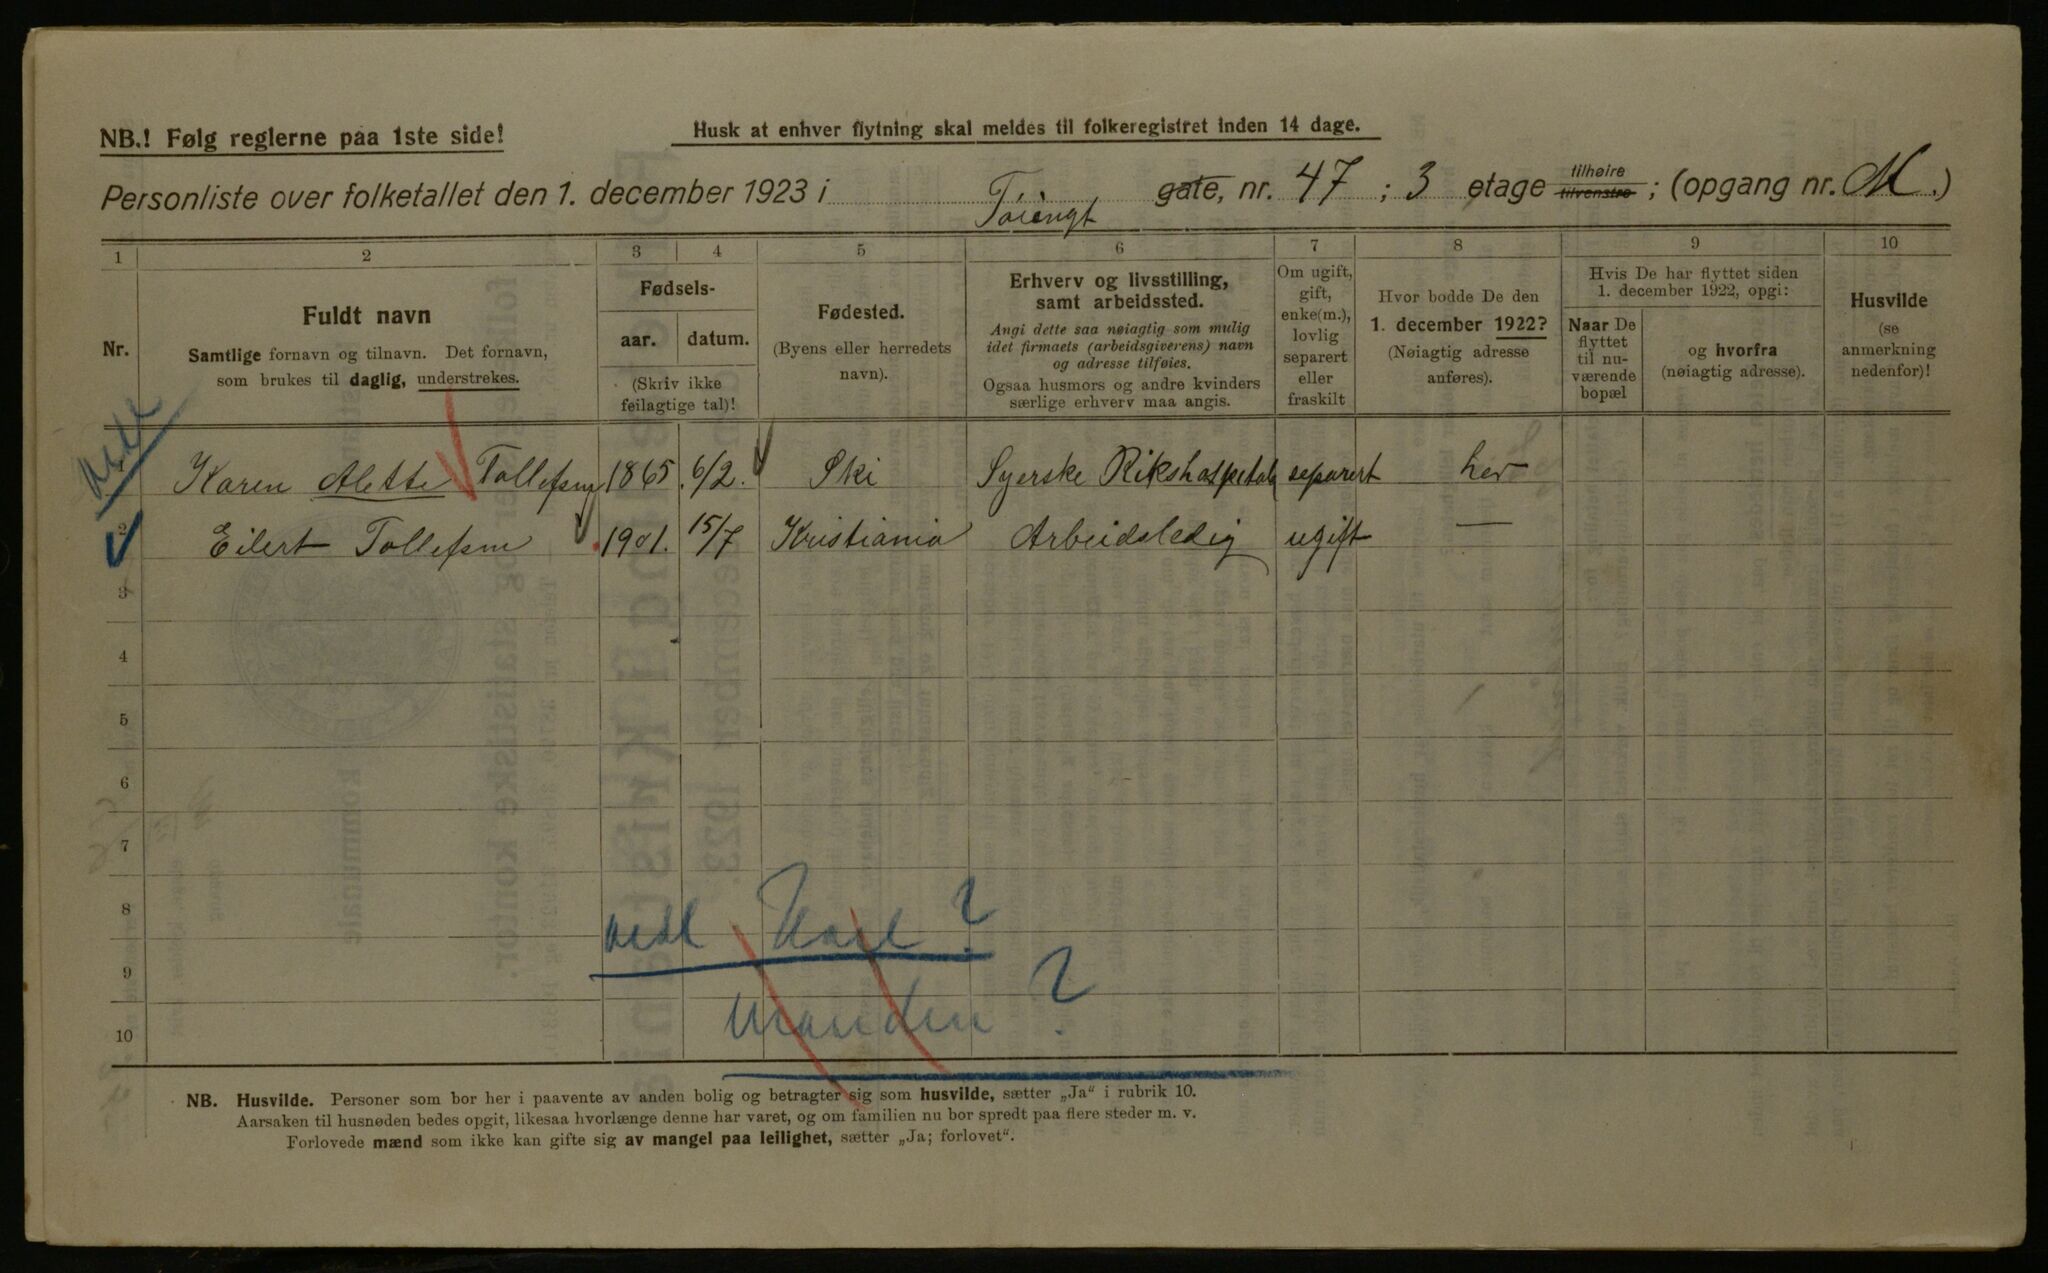 NB.! Følg reglerne paa 1ste side!
Husk at enhver flytning skal meldes til folkeregistret inden 14 dage.
Personliste over folketallet den 1. december 1923 i Töiengt gate, nr. 47 ; 3 etage tilhøire tilvenstre ; (opgang nr. M.)
1 2 3 4 5 6 7 8 9 10
Nr.
Fuldt navn
Samtlige fornavn og tilnavn. Det fornavn,
som brukes til daglig, understrekes.
Fødsels-
aar. datum.
(Skriv ikke
feilagtige tal)!
Fødested.
(Byens eller herredets
navn).
Erhverv og livsstilling,
samt arbeidssted.
Angi dette saa nøiagtig som mulig
idet firmaets (arbeidsgiverens) navn
og adresse tilføies.
Ogsaa husmors og andre kvinders
særlige erhverv maa angis.
Om ugift,
gift,
enke(m.),
lovlig
separert
eller
fraskilt
Hvor bodde De den
1. december 1922?
(Nøiagtig adresse
anføres).
Hvis De har flyttet siden
1. december 1922, opgi:
Naar De
flyttet
til nu-
værende
bopæl
og hvorfra
(nøiagtig adresse).
Husvilde
(se
anmerkning
nedenfor)!
Karen Alette Tollefsen 1865 6/2. Ski Syerske Rikshospetale separert her
2 Eilert Tollefsen 1901. 15/7 Kristiania Arbeidsledig ugift —
3
4
5
6
7
8
9
10
?
Manden ?
NB. Husvilde. Personer som bor her i paavente av anden bolig og betragter sig som husvilde, sætter „Ja“ i rubrik 10.
Aarsaken til husnøden bedes opgit, likesaa hvorlænge denne har varet, og om familien nu bor spredt paa flere steder m. v.
Forlovede mænd som ikke kan gifte sig av mangel paa leilighet, sætter „Ja; forlovet“.